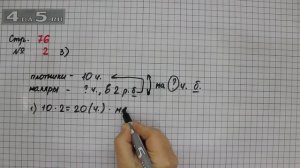 4-5.RU
Стр. 76
№ 2 3)
плотники - 10 ч.
маляры - ? ч., в 2 р. б на ? ч. б.
1) 10 · 2 = 20 (ч.) - м